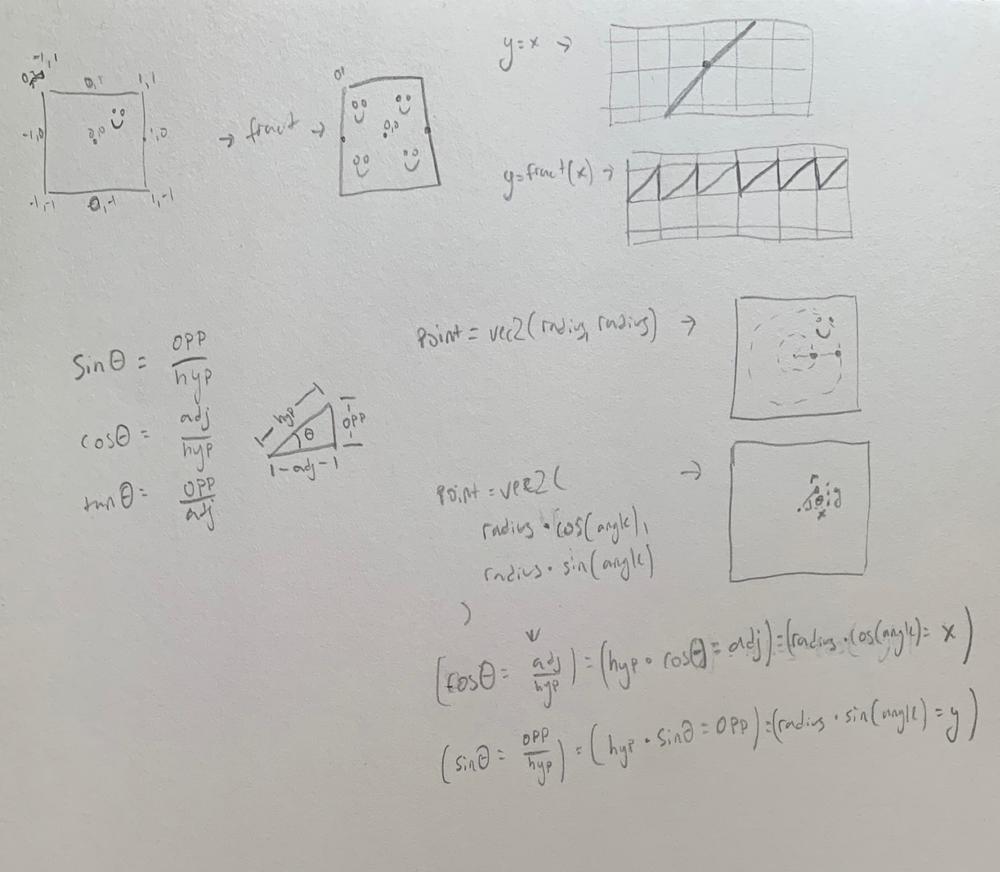 -1,1
0,1
1,1
-1,0
0,0
1,0
-1,-1
0,-1
1,-1
→ fract →
0,1
0,0
y=x →
y=fract(x) →
sinθ = opp/hyp
cosθ = adj/hyp
tanθ = opp/adj
hyp
θ
opp
adj
point = vec2(radius, radius) →
point = vec2( →
radius · cos(angle),
radius · sin(angle)
)
r
θ
y
x
(cosθ = adj/hyp) = (hyp · cosθ = adj) = (radius · cos(angle) = x)
(sinθ = opp/hyp) = (hyp · sinθ = opp) = (radius · sin(angle) = y)